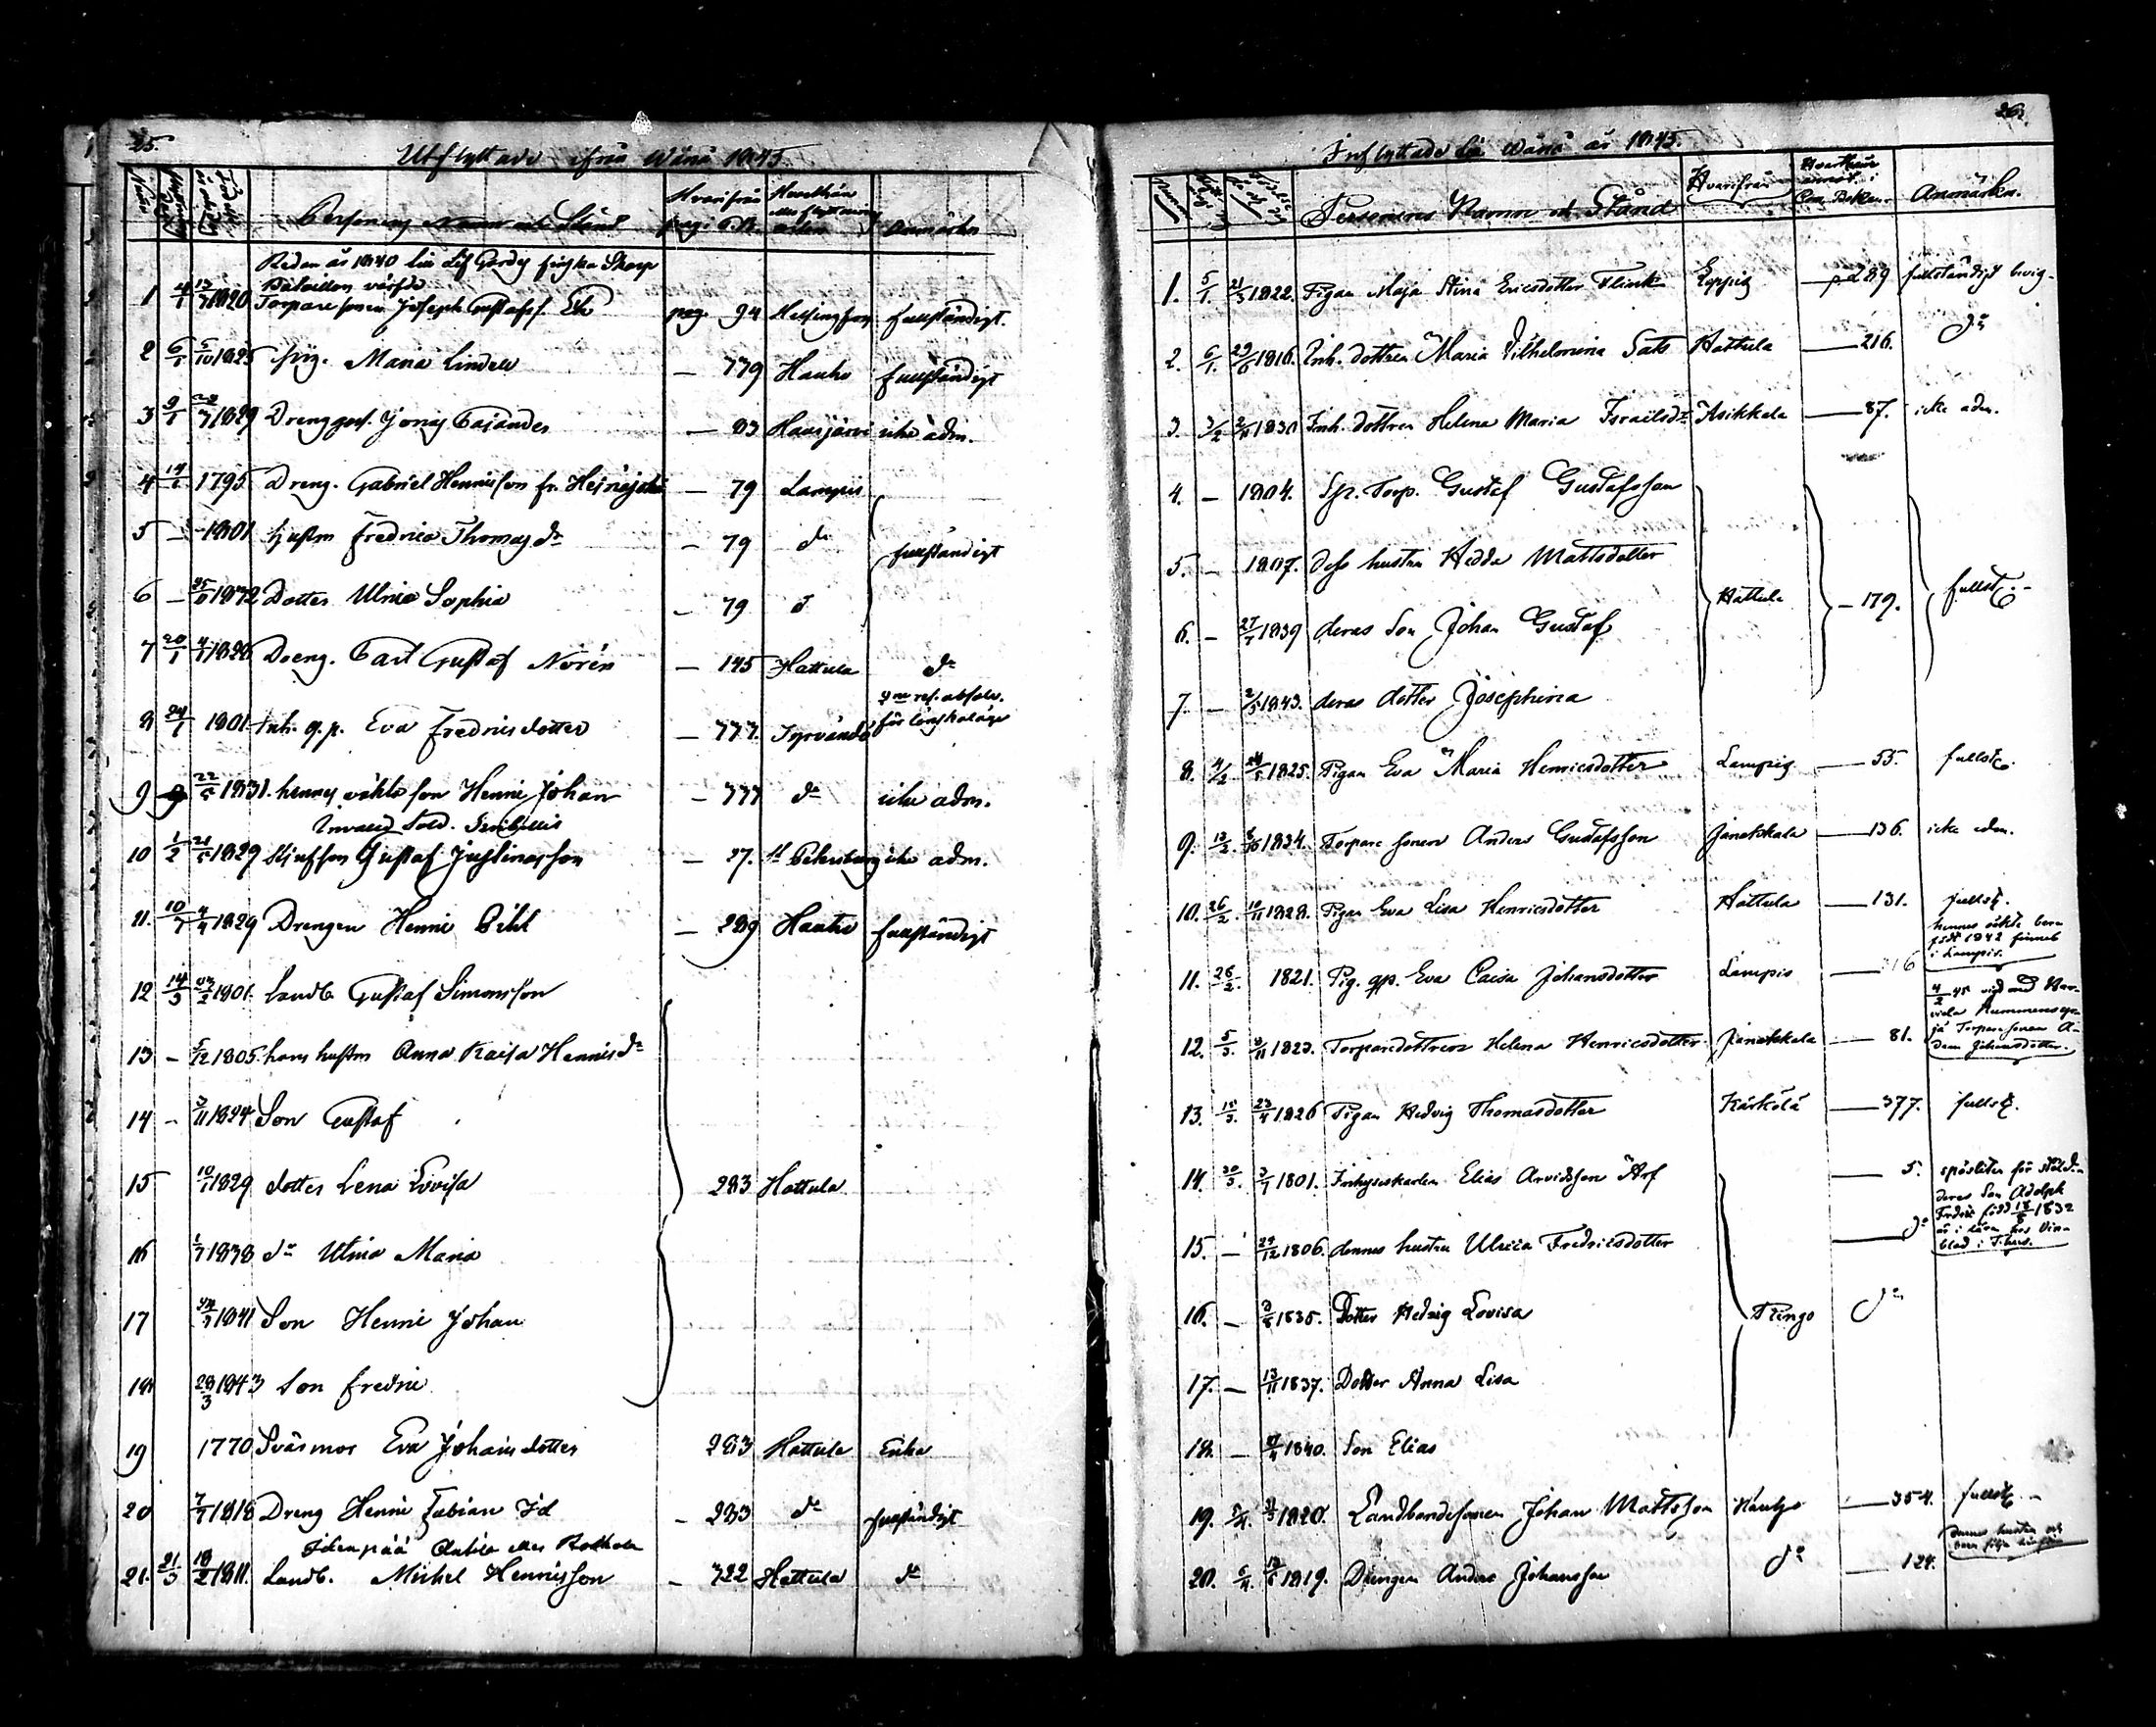 25.
Utflyttade ifrån Wånå 1845.
Personens Namn och Stånd
Hvarifrån pag. C.B.
Anmärkn
Redan år 1840 till Lif Gardes finska Skarp
Bataillon värfde
1 4/1 13/3 1820 Torparesonen Joseph Gustafss. Ek pag. 94 Helsingfors fullständigt.
2 6/1 5/10 1825 pig. Maria Lindell — 779 Hauho fullständigt
3 9/1 1829 Drenggoss. Jonas Cajander — 83 Hausjärvi icke adm.
4 14/1 1795 Dreng. Gabriel Henricsson fr. — 79 Lampis
5 — 1801 Hustrun Fredrica Thomasdr — 79 do fullständigt
6 — 1832 Dotter Ulrica Sophia — 79 d
7 20/1 1828 Dreng. Carl Gustaf Norén — 145 Hattula do
8 24/1 1801 Inh. q.p. Eva Fredricsdotter — 777. Tyrvändö
9 22/5 1831. hennes oäkta son Henric Johan — 777 do icke adm.
Invalid Sold.
10 1/2 21/5 1829 Stjufson Gustaf Justinasson — 27. St Petersburg icke adm.
11. 10/3 4/4 1829 Drengen Henric Pihl — 289 Hauho fullständigt
12 14/3 1801. Landb. Gustaf Simonsson
13 — 5/12 1805. hans hustru Anna Kaisa Henricsdr
14 — 3/11 1824 Son Gustaf
15 10/1 1829 dotter Lena Lovisa 283 Hattula
16 1/7 1838 do Ulrica Maria
17 1841 Son Henric Johan
18 28/3 1843 Son Fredric
19 1770 Svärmor Eva Johansdotter 283 Hattula Enka
20 7/7 1818 Dreng Henric Fabian Id — 283 do fullständigt
21. 21/3 18/2 1811. Landb. Michel Henricsson — 722 Hattula do
26.
Inflyttade till Wånå år 1845.
Personens Namn och Stånd
Hvarifrån
Anmärkn.
1. 5/1. 21/3 1822. Pigan Maja Stina Ericsdotter Flink Loppis — p. 289 fullständigt
2. 6/1. 29/6 1816. Inh. dottren Maria Vilhelmina Sats Hattula — 216. do
3. 3/2 1830 Inh. dottren Helena Maria Israelsdr Asikkala — 87. icke adm.
4. — 1804. Sp. Torp. Gustaf Gustafsson
5. — 1807. dess hustru Hedda Mattsdotter
Hattula — 179. fullst.
6. — 27/7 1839 deras Son Johan Gustaf
7. — 2/5 1843. deras dotter Josephina
8. 4/2 1825. Pigan Eva Maria Henricsdotter Lampis — 55. fullst.
9. 12/2. 1834. Torpare sonen Anders Gustafsson Janakkala — 136. icke adm.
10. 26/2. 10/11 1828. Pigan Eva Lisa Henricsdotter Hattula — 131. fullst.
hennes oäkta barn
född 1842 finnes
i Lampis.
11. 26/2. 1821. Pig. qp. Eva Caisa Johansdotter Lampis — 16
12. 5/3. 3/11 1823. Torparedottren Helena Henricsdotter Janakkala — 81.
13. 15/3. 23/4 1826 Pigan Hedvig Thomasdotter Kärkölä — 377. fullst.
14. 30/3. 3/7 1801. Inhyseskarlen Elias Arvidsson Arf — 5.
deras Son Adolph
Fredric född 18/8 1832
15. — 29/12 1806. dennes hustru Ulrica Fredricsdotter — do
16. — 3/8 1835. Dotter Hedvig Lovisa Rengo do
17. — 13/11 1837. Dotter Anna Lisa
18. — 1840. Son Elias
19. 5/4. 1820. Landbondesonen Johan Mattsson Hauho — 354. fullst.
20. 6/4. 12/6 1819. Drengen Anders Johansson do — 124.